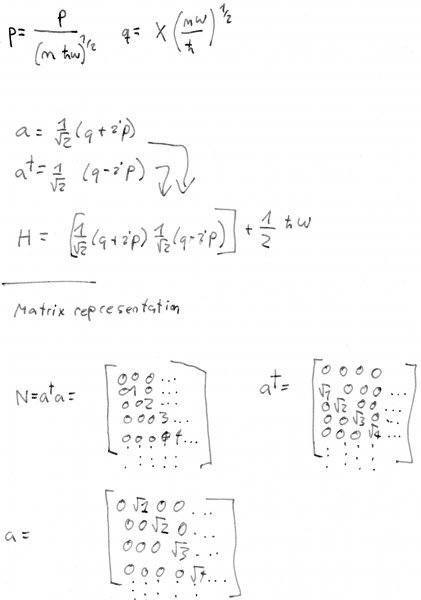 p = P/(m ħω)^1/2 q = X (mω/ħ)^1/2
a = 1/√2 (q + ip)
a† = 1/√2 (q - ip)
H = [1/√2 (q + ip) 1/√2 (q - ip)] + 1/2 ħω
Matrix representation
N = a†a = a† =
0 0 0 ...
0 1 0 ...
0 0 2 ...
0 0 0 3 ...
0 0 0 0 4 ...
. . . . .
0 0 0 0
√1 0 0 0 ...
0 √2 0 0 ...
0 0 √3 0 ...
0 0 0 √4 ...
. . . .
a =
0 √1 0 0 ...
0 0 √2 0 ...
0 0 0 √3 ...
0 0 0 0 √4 ...
. . . . .